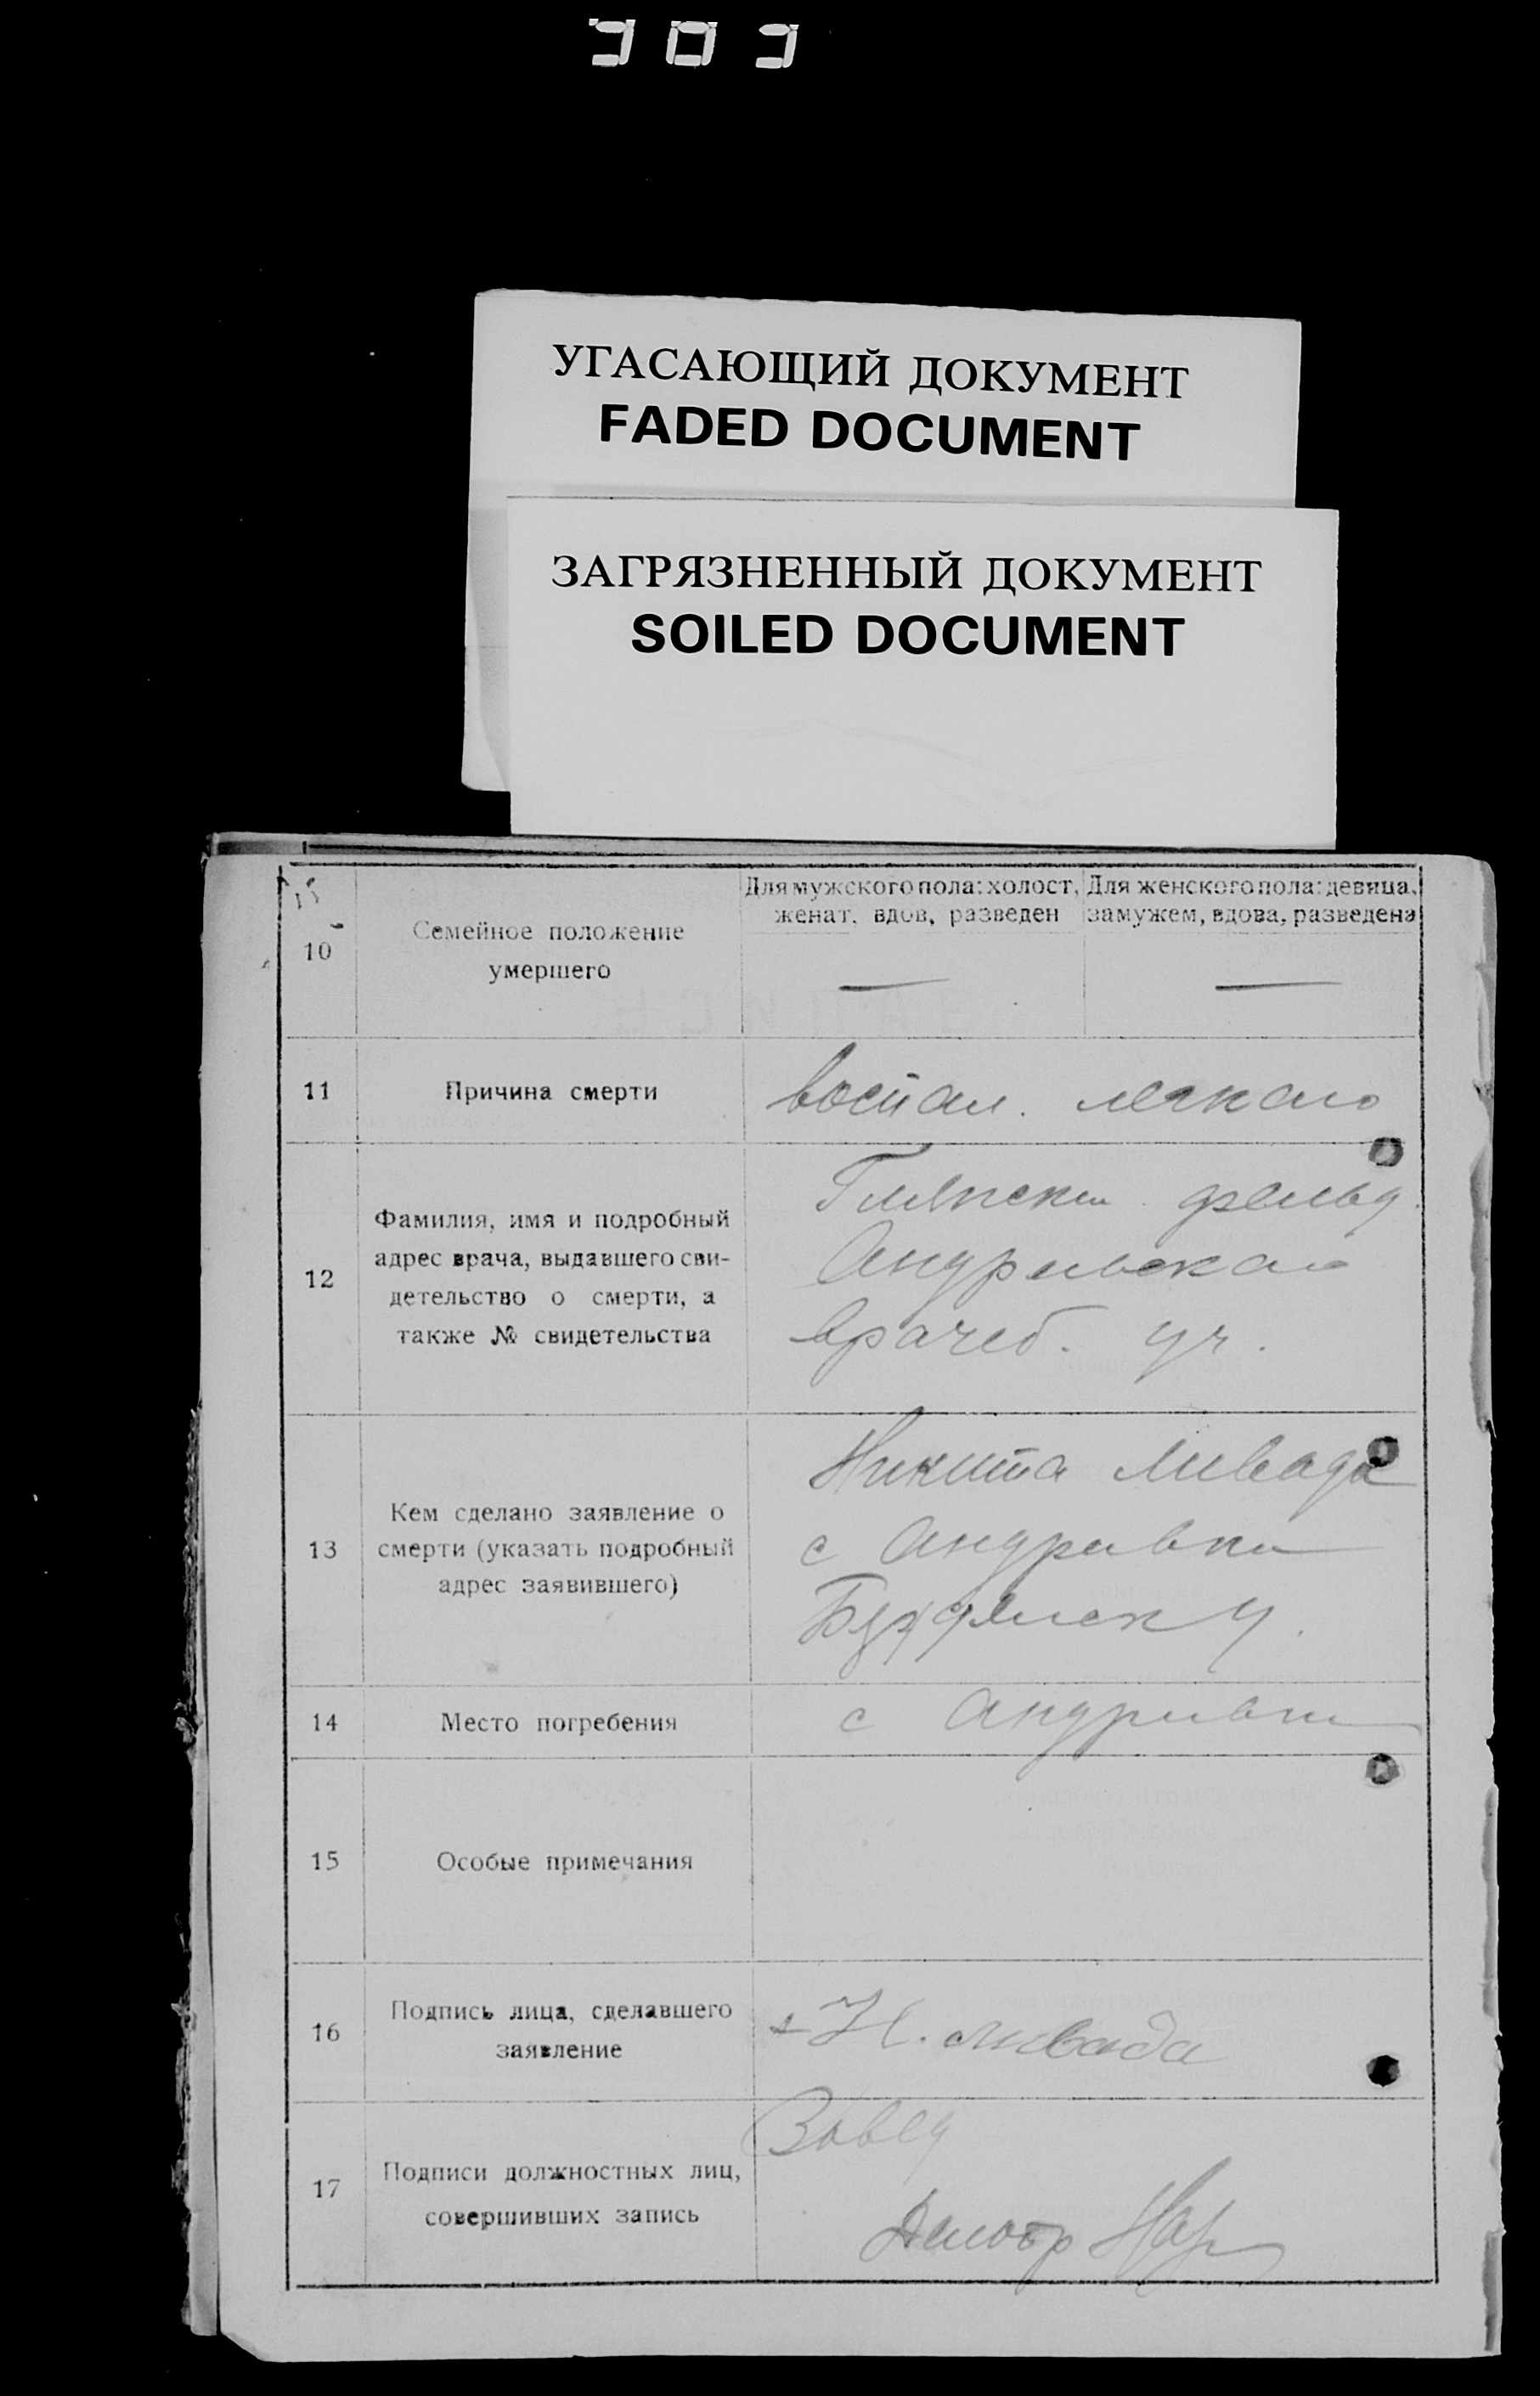 303
УГАСАЮЩИЙ ДОКУМЕНТ
FADED DOCUMENT
ЗАГРЯЗНЕННЫЙ ДОКУМЕНТ
SOILED DOCUMENT
10
Семейное положение
умершего
Для мужского пола: холост,
женат, вдов, разведен
—
Для женского пола: девица,
замужем, вдова, разведена
—
11
Причина смерти
воспал. легкаго
12
Фамилия, имя и подробный
адрес врача, выдавшего сви-
детельство о смерти, а
также № свидетельства
фельд.
врачеб. уч.
13
Кем сделано заявление о
смерти (указать подробный
адрес заявившего)
Никита Ливада
с Андривки
14
Место погребения
с Андривки
15
Особые примечания
16
Подпись лица, сделавшего
заявление
Н. Ливада
17
Подписи должностных лиц,
совершивших запись